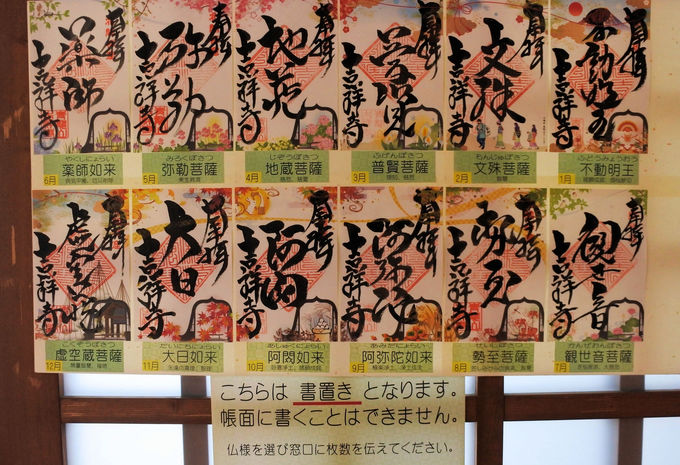 奉拝
薬師
吉祥寺
奉拝
弥勒
吉祥寺
奉拝
地蔵
吉祥寺
奉拝
普賢
吉祥寺
奉拝
文殊
吉祥寺
奉拝
不動明王
吉祥寺
やくしにょらい
薬師如来
6月
みろくぼさつ
弥勒菩薩
5月
じぞうぼさつ
地蔵菩薩
4月
ふげんぼさつ
普賢菩薩
3月
もんじゅぼさつ
文殊菩薩
2月 智慧
ふどうみょうおう
不動明王
1月
奉拝
虚空蔵
吉祥寺
奉拝
大日
吉祥寺
奉拝
阿閦
吉祥寺
奉拝
阿弥陀
吉祥寺
奉拝
吉祥寺
奉拝
観世音
吉祥寺
こくぞうぼさつ
虚空蔵菩薩
12月
だいにちにょらい
大日如来
11月
あしゅくにょらい
阿閦如来
10月
あみだにょらい
阿弥陀如来
9月 極楽浄土、
せいしぼさつ
勢至菩薩
8月
かんぜおんぼさつ
観世音菩薩
7月
こちらは 書置き となります。
帳面に書くことはできません。
仏様を選び窓口に枚数を伝えてください。